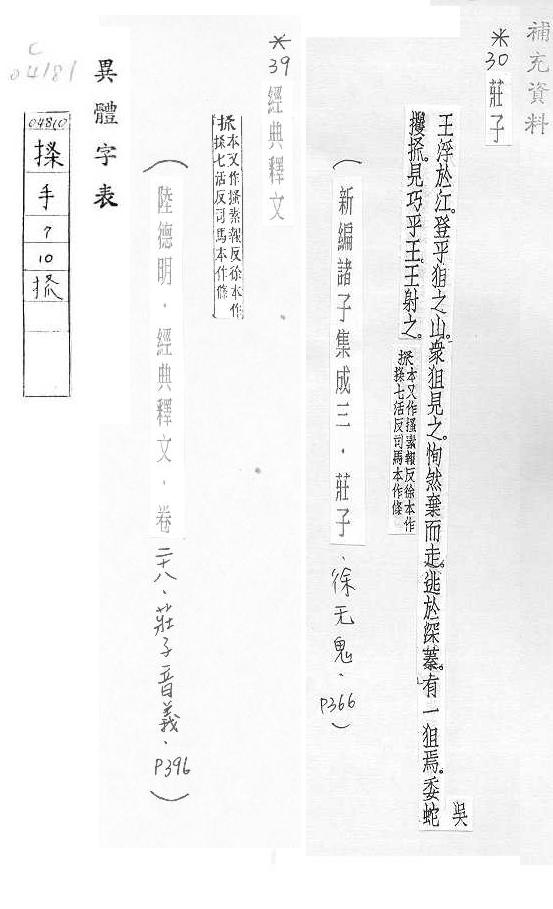 補充資料
*30 莊子
吳
王浮於江。登乎狙之山。衆狙見之。恂然棄而走。逃於深蓁。有一狙焉。委蛇
攫𢮞。見巧乎王。王射之。
𢮞本又作搔素報反徐本作
七活反司馬本作條
(新編諸子集成三．莊子．徐无鬼．P366)
*39 經典釋文
𢮞本又作搔素報反徐本作
七活反司馬本作條
(陸德明．經典釋文．卷二十八．莊子音義．P396)
異體字表
C
04181
04810
手
7
10
𢮞